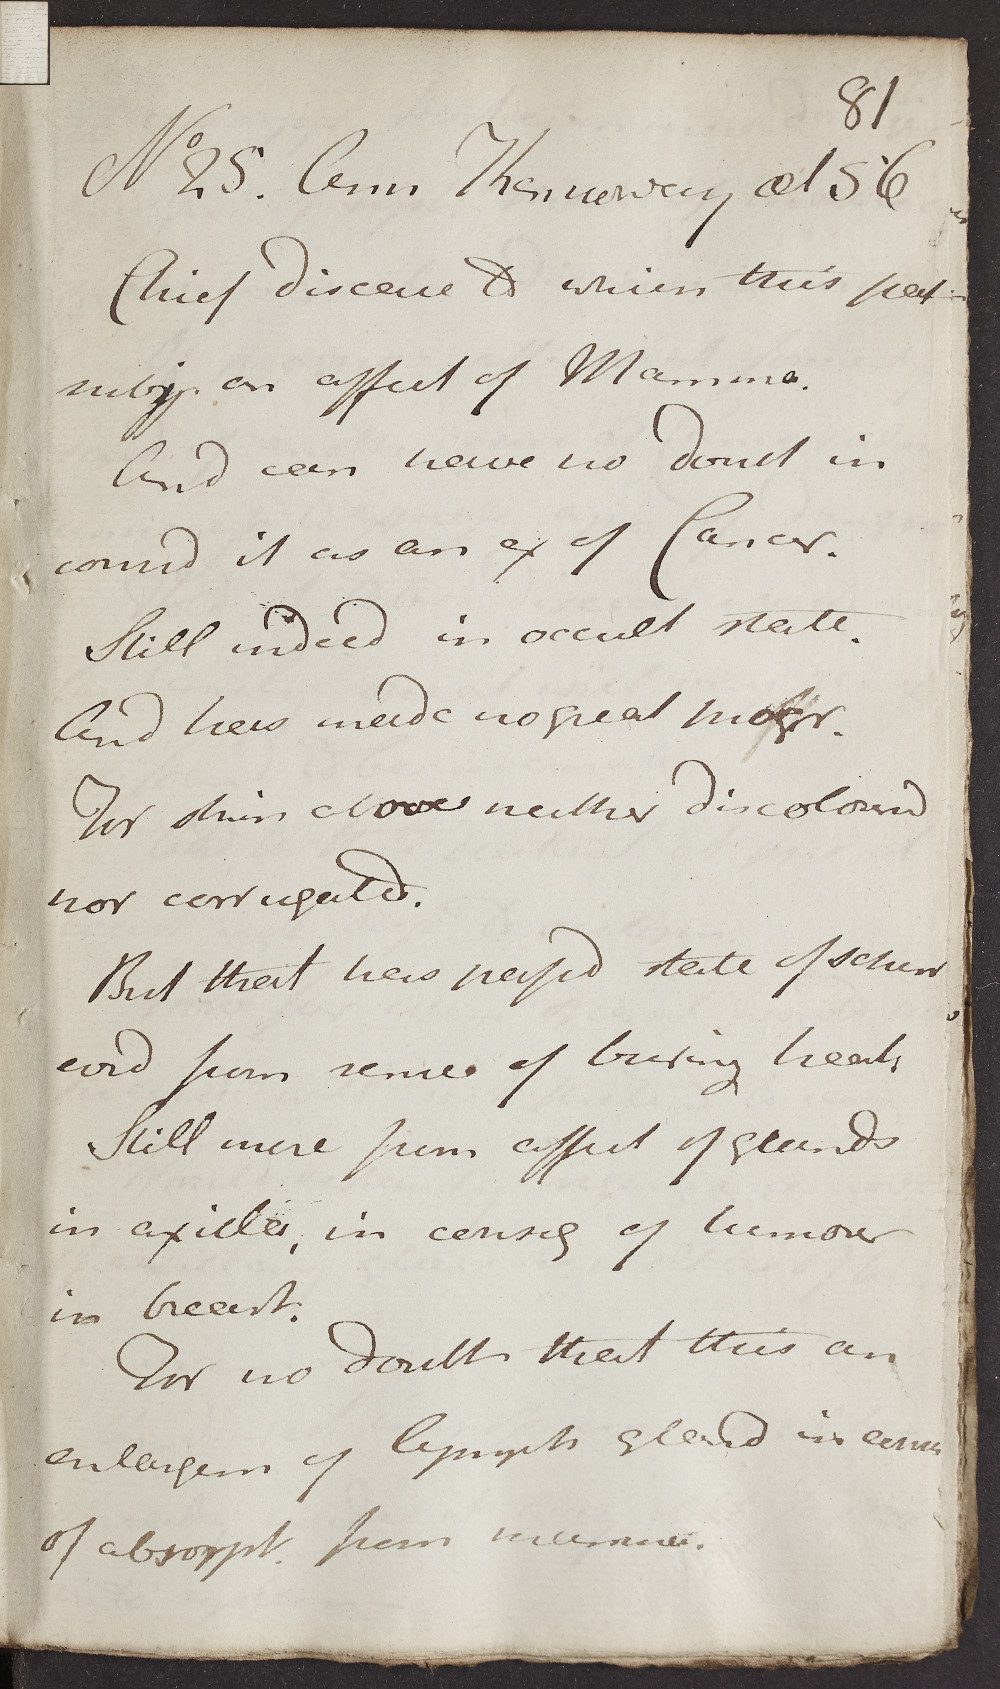 81
No 25. Ann Kennoway æt 56
Chief disease to which this pat
subj. an affect of Mamma.
And can have no doubt in
consid it as an ex of Cancer.
Still indeed in occult state.
And has made no great progr.
For skin above neither discolourd
nor corrugated.
But that has passd state of schirr
evid from sense of burning heat
Still more from affect of glands
in axilla, in conseq of tumour
in breast.
For no doubt that this an
enlargem of lymph gland in cons
of absorpt. from mamma.